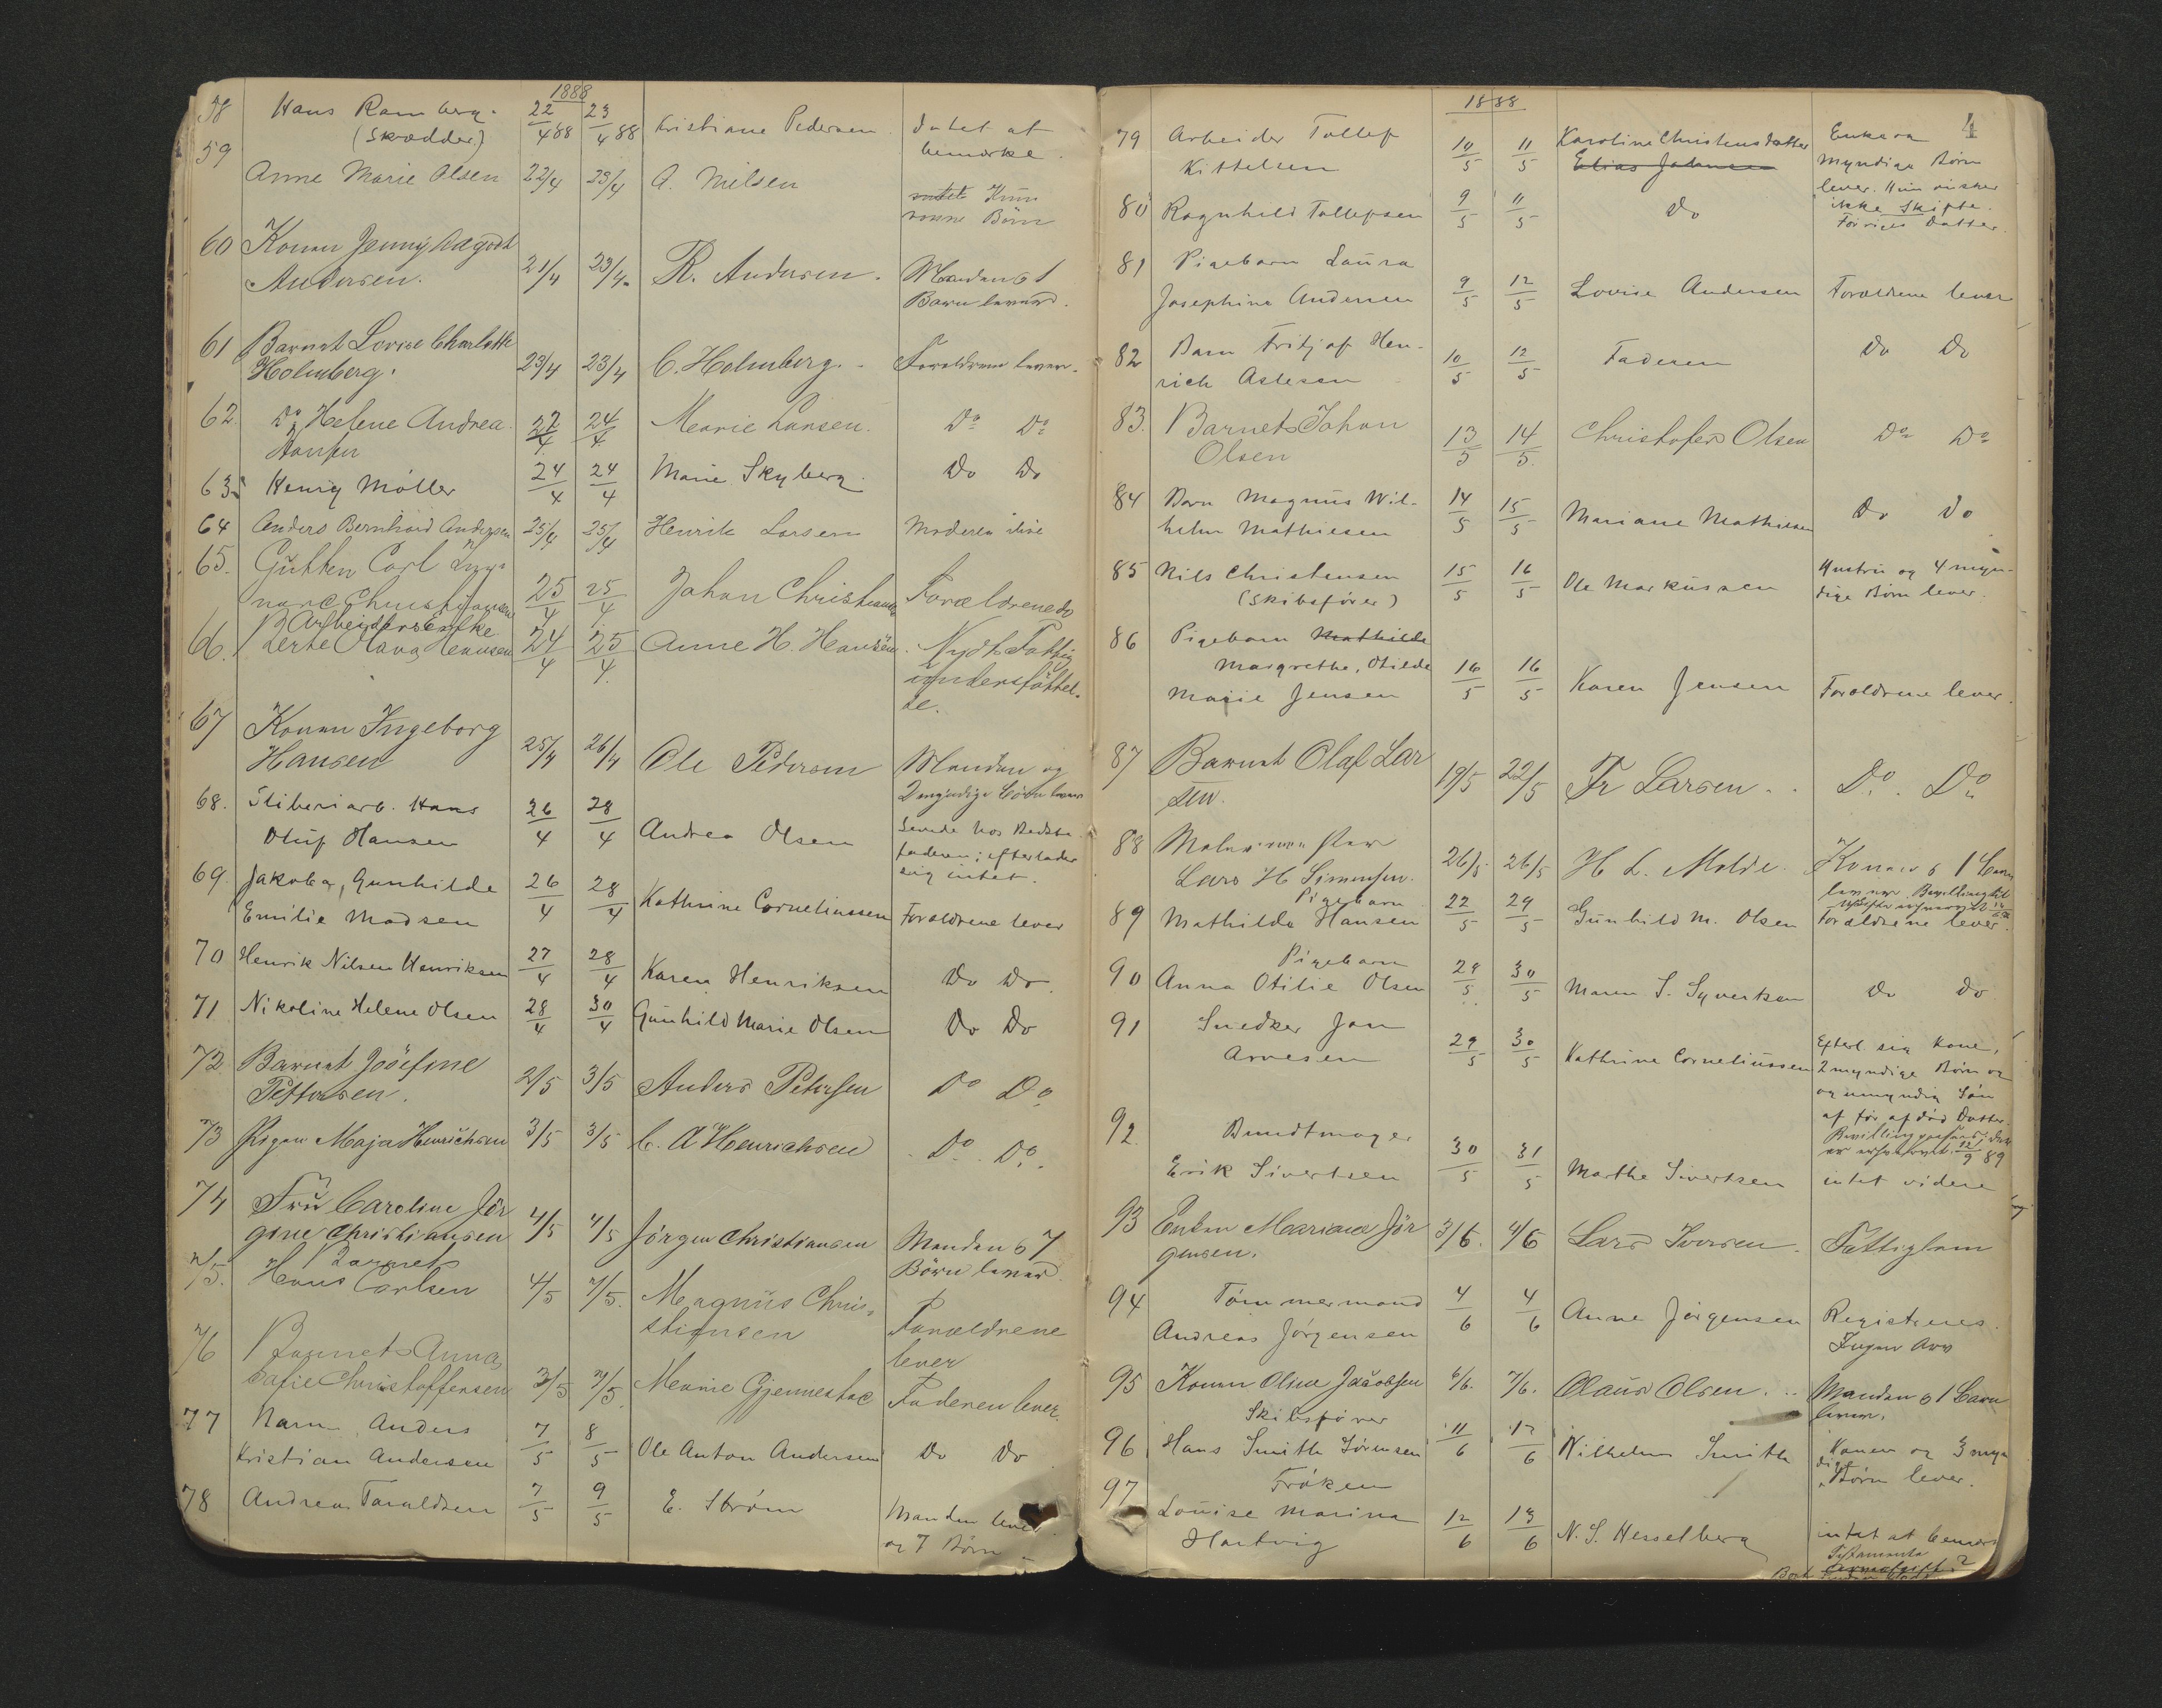 1888
58 Hans Ramberg. 22/4 88 23/4 88 Kristiane Pedersen Intet at
(Skrædder) bemærke.
59 Anne Marie Olsen 22/4 23/4 A. Nilsen
intet Kun
voxne Börn
60 Konen Jenny
Andersen. 21/4 23/4 R. Andersen. Manden 6 1
Barn lever.
61 Barnet Lovise Charlotte
Holmberg. 23/4 23/4 C. Holmberg. Forældrene lever.
62 Do Helene Andrea 22/4 24/4 Marie Larsen. Do Do
Hansen
63 Henrij Möller 24/4 24/4 Marie Skyberg. Do Do
64 Anders Bernhard Andersen 25/4 25/4 Henrik Larsen Moderen
65. Gutten Carl
Christiansen 25/4 25/4 Johan Christiansen Forældrene do
Arbeiders Enke
66. Hansen 24/4 25/4 Anne H. Hansen. Nydt Fattig
understöttel-
se.
67 Konen Ingeborg
Hansen 25/4 26/4 Ole Pedersen Manden og
2 myndige Börn lever
68. Sliberiarb. Hans 26/4 28/4 Andrea Olsen Levede hos Bedste-
Oluf Hansen faderen; efterlader
sig intet.
69. Jakoba, Gunhilde 26/4 28/4 Kathrine Corneliussen Forældrene lever
Emilie Madsen
70 Henrik Nilsen Henriksen 27/4 28/4 Karen Henriksen Do Do.
71 Nikoline Helene Olsen 28/4 30/4 Gunhild Marie Olsen Do Do
72 Barnet Josefine
Pettersen. 2/5 3/5 Anders Petersen Do Do
73 Pigen Maja Henrichsen 3/5 3/5 C. A Henrichsen Do. Do.
74 Fru Caroline Jör
gine Christiansen 4/5 4/5 Jörgen Christiansen Manden 6 7
Börn lever.
75. Barnet
Hans Carlsen 4/5 7/5. Magnus Chris-
stiansen Forældrene
lever
76 Barnet Anna
Sofie Christoffersen 3/5 7/5. Marie Faderen lever.
77 Barn Anders 7/5 8/5 Ole Anton Andersen Do Do
Kristian Andersen
78 Andrea Taraldsen 7/5 9/5 E. Ström Manden lever
og 7 Börn
4
1888
79 Arbeider Tollef 10/5 11/5 Karoline Christensdatter Enke og
Kittelsen Elias Johnsen myndige Börn
lever. Hun önsker
ikke Skifte.
80 Ragnhild Tollefsen 9/5 11/5 Do Forriges Datter.
81 Pigebarn Laura
Josephine Andersen 9/5 12/5 Lovise Andersen Forældrene lever
82 Barn Fritjof Hen-
rich Aslesen 10/5 12/5 Faderen Do Do
83. Barnet Johan
Olsen 13/5 14/5. Christofer Olsen Do Do
84 Barn Magnus Wil-
helm Mathiesen 14/5 15/5 Mariane Mathiesen Do Do
85 Nils Christensen 15/5 16/5 Ole Markussen Hustru og 4 myn-
(Skibsförer) dige Börn lever.
86 Pigebarn Mathilde
Margrethe, Otilde
Marie Jensen 16/5 16/5 Karen Jensen Forældrene lever.
87 Barnet Olaf Lar
sen. 19/5 22/5 Fr Larsen. Do. Do
88 Maler
Lars H Simonsen. 26/5 26/5 H. L. Molde. Konen 6 1 Barn
lever. Bevilling til
89 Pigebarn
Mathilde Hansen 22/5 29/5 Gunhild M. Olsen Forældrene lever.
90 Pigebarn
Anna Otilie Olsen 29/5 30/5 Maren S. Syvertsen Do Do
91 Snedker Jan
Arvesen 29/5 30/5 Kathrine Corneliussen Efterl. sig Kone,
2 myndige Börn og
og umyndig Sön
af för afdöd Datter.
Bevilling
12/9 89
92. Bundtmager
Erik Sivertsen 30/5 31/5 Marthe Sivertsen intet videre
93 Enken Mariane Jör
gensen. 3/6. 4/6 Lars Iversen. Fattiglem
94 Tömmermand 4/6 4/6 Anne Jörgensen Registreres.
Andreas Jörgensen Ingen Arv
95 Konen Oline Jacobsen 6/6. 7/6. Olaus Olsen. Manden 6 1 Barn
lever.
96 Skibsförer
Hans Smith Sörensen 11/6 12/6 Wilhelm Smith Konen og 3 myn
dige Börn lever.
97 Fröken
Louise Marina
Hartvig 12/6 13/6 N. S. Hesselberg intet at bemærke
Testamente